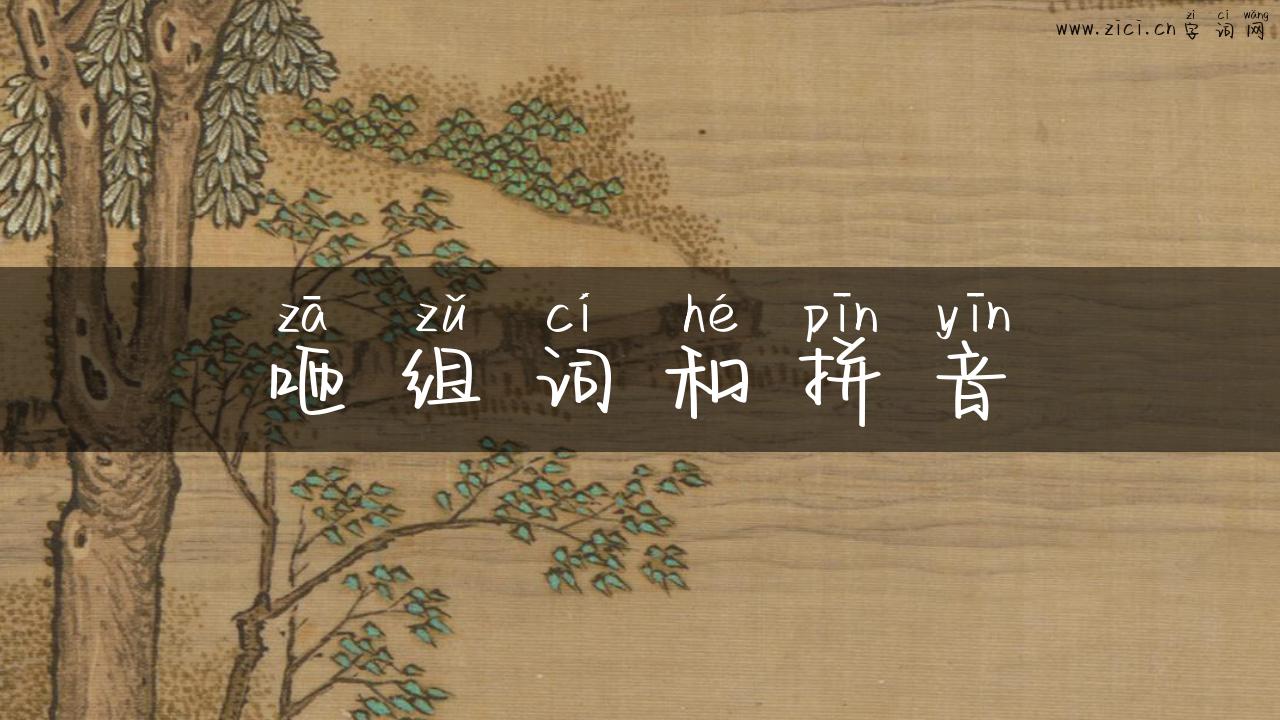 zì cí wǎng
www.zici.cn 字 词 网
zā zǔ cí hé pīn yīn
咂 组 词 和 拼 音